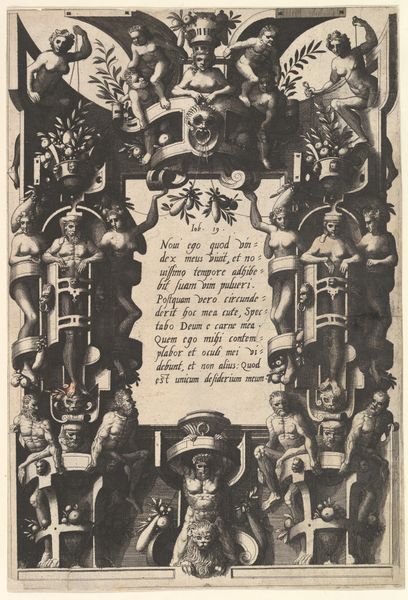 Iob · 19 ·
Noui ego quod vin=
dex meus viuit, et no=
uissimo tempore adhibe=
bit suam vim pulueri.
Postquam vero circunde=
derit hoc mea cute, Spec=
tabo Deum e carne mea.
Quem ego mihi contem=
plabor et oculi mei vi=
debunt, et non alius: Quod
est unicum desiderium meum